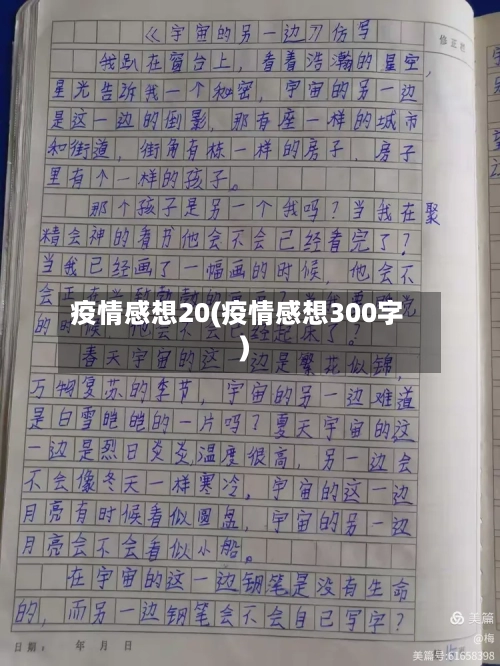 《宇宙的另一边》仿写
修正栏
我趴在窗台上，看着浩瀚的星空，
星光告诉我一个秘密，宇宙的另一边
是这一边的倒影，那有座一样的城市
和街道，街角有栋一样的房子，房子
里有个一样的孩子。
那个孩子是另一个我吗？当我在聚
精会神的看书他会不会已经看完了？
当我已经画了一幅画的时候，他会不
会正在
疫情感想20(疫情感想300字
)
的时
春天宇宙的这一边是繁花似锦，
万物复苏的季节，宇宙的另一边难道
是白雪皑皑的一片吗？夏天宇宙的这
一边是烈日炎炎温度很高，另一边会
不会像冬天一样寒冷。宇宙的这一边
月亮有时候看似圆盘，宇宙的另一边
月亮会不会看似小船。
在宇宙的这一边钢笔是没有生命
的，而另一边钢笔会不会自己写字？
日期： 年 月 日
美篇
@梅
美篇号:61658398